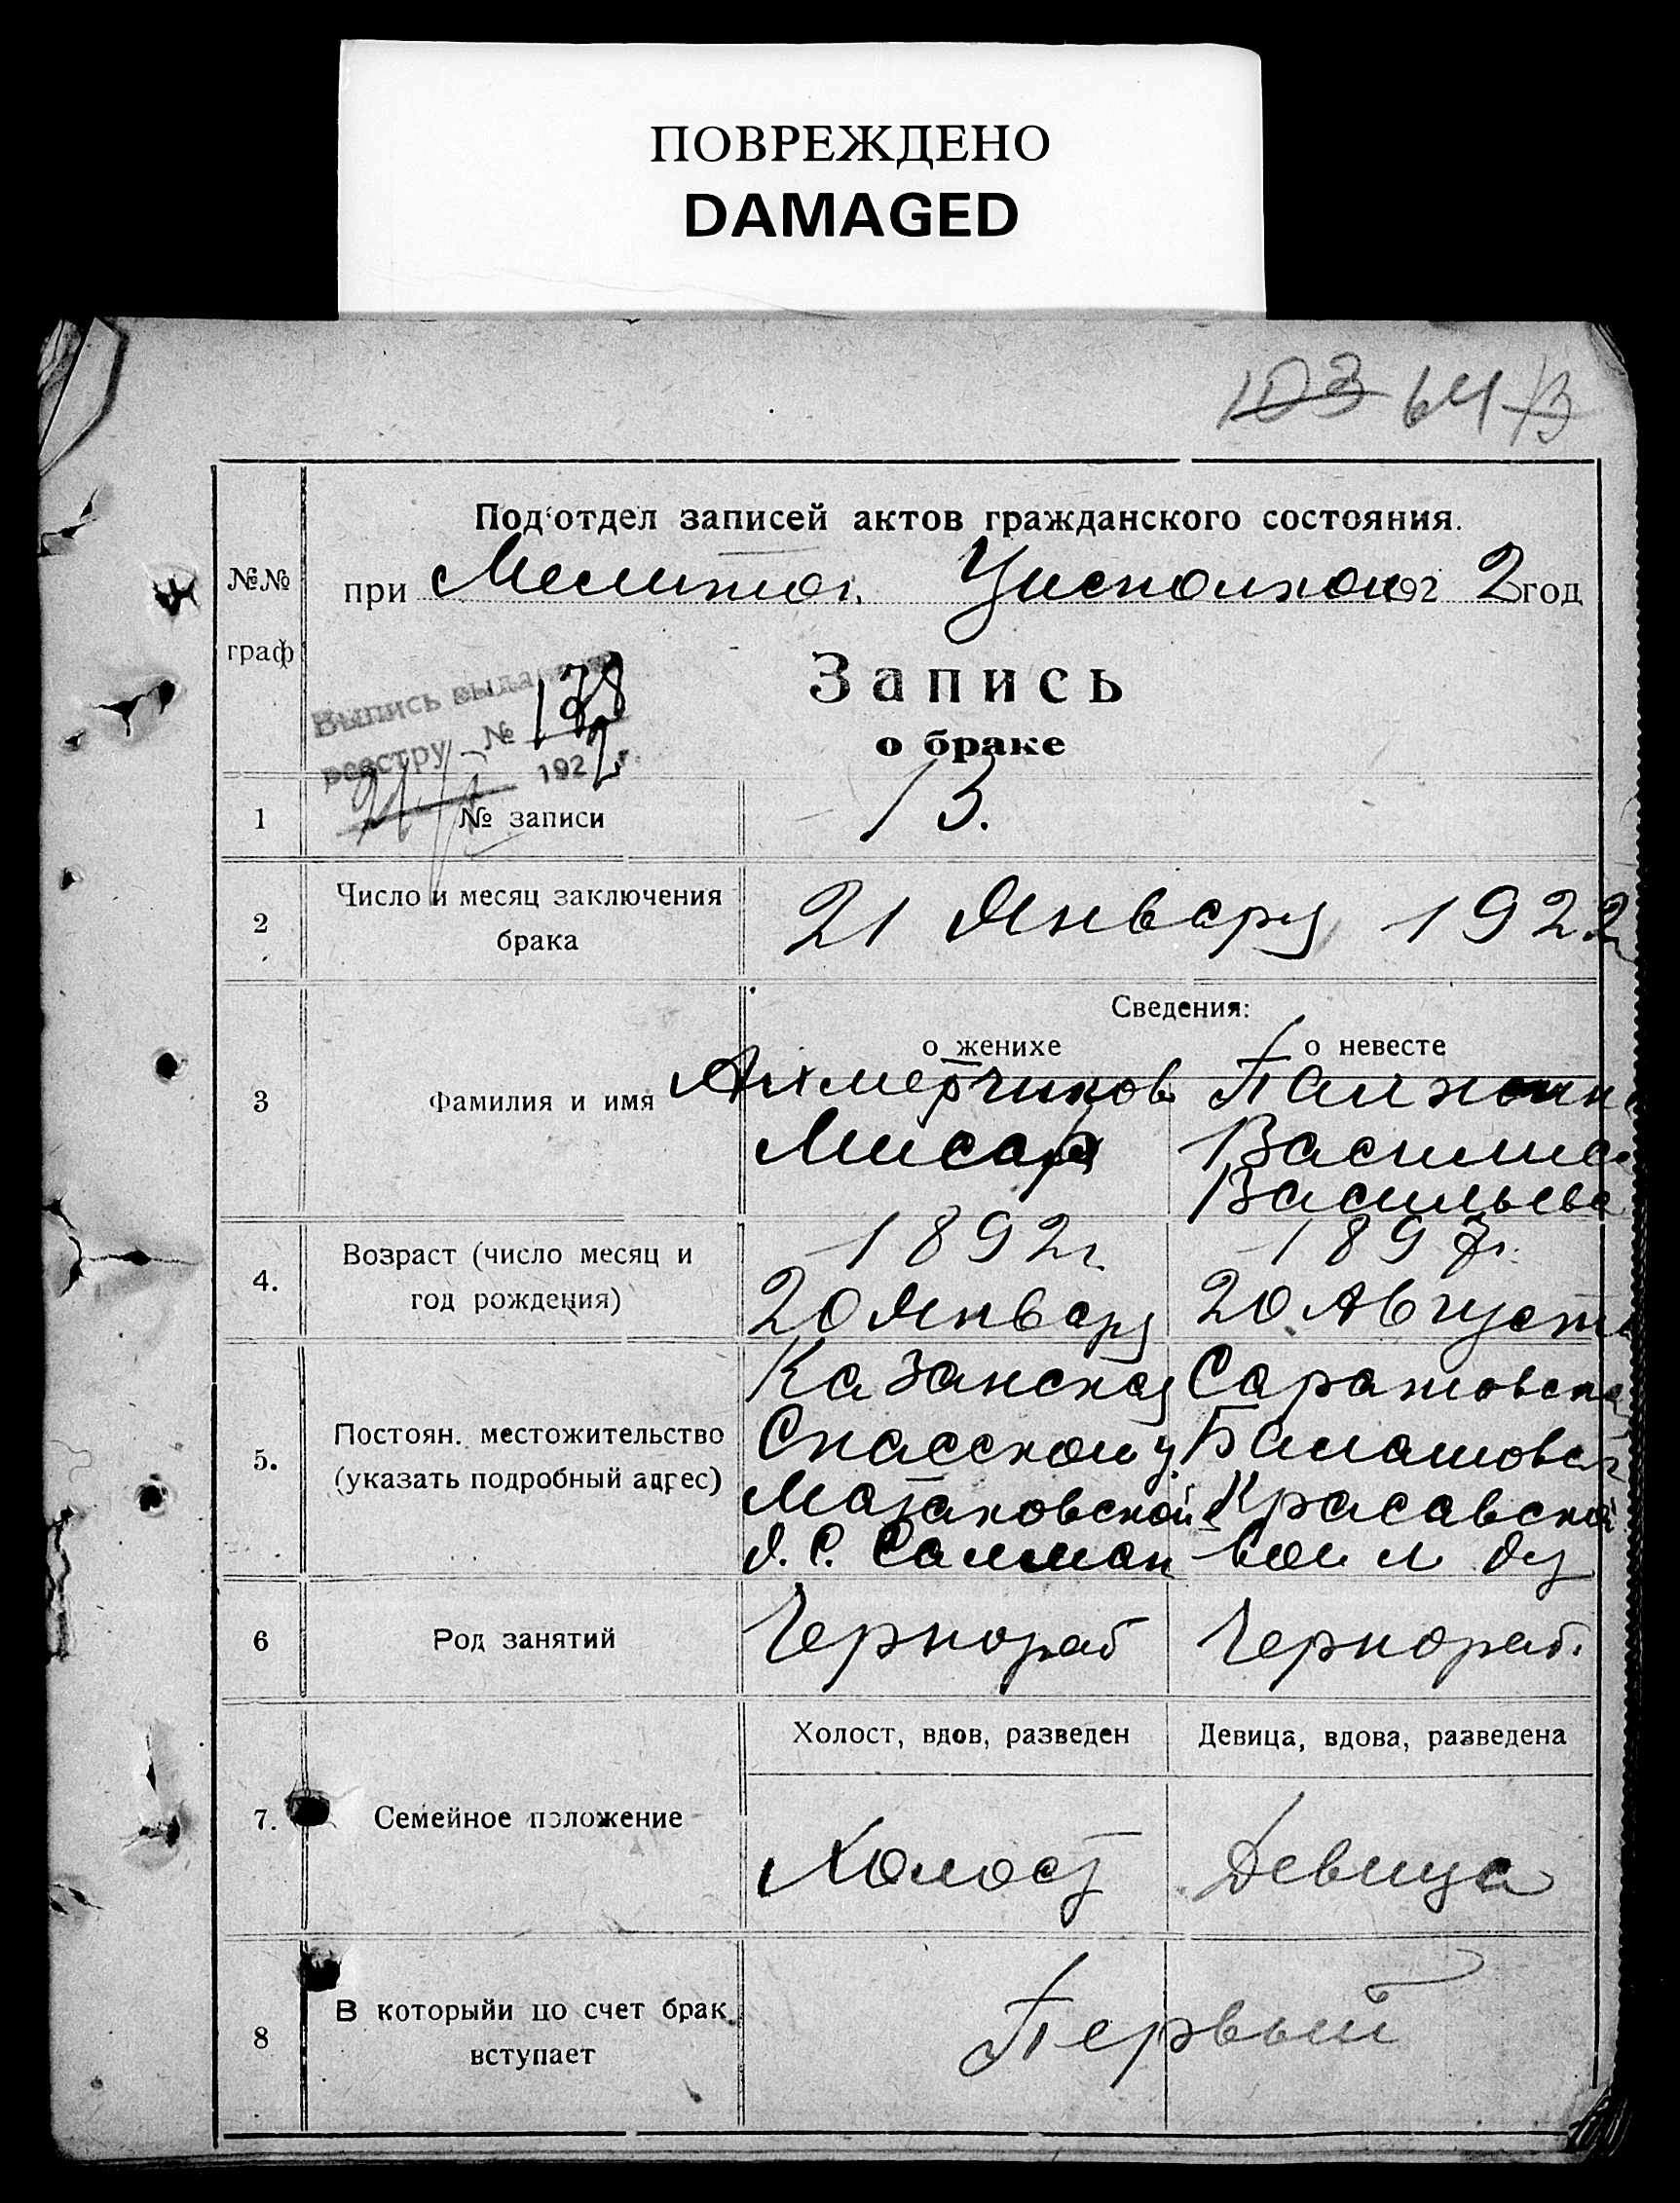 ПОВРЕЖДЕНО
DAMAGED
103 64 73
Под'отдел записей актов гражданского состояния.
№№
граф
при Мелитоп. Уисполком 1922 год
Выпись выдана
реестру № 138
21/I 1922 г.
Запись
о браке
1 № записи 13.
2 Число и месяц заключения
брака
21 Январу 1922
Сведения:
о женихе о невесте
3 Фамилия и имя
Василиса
Васильева
4. Возраст (число месяц и
год рождения)
1892 г. 1897 г.
20 Январу 20 Август
5. Постоян. местожительство
(указать подробный адрес)
Казанскау Саратовска
Спасском у. Балашовск
Красавской
д. С. Салман вол м ду
6 Род занятий Чернораб Чернораб.
Холост, вдов, разведен Девица, вдова, разведена
7. Семейное положение Холост Девица
8 В которыйи по счет брак
вступает
Первый